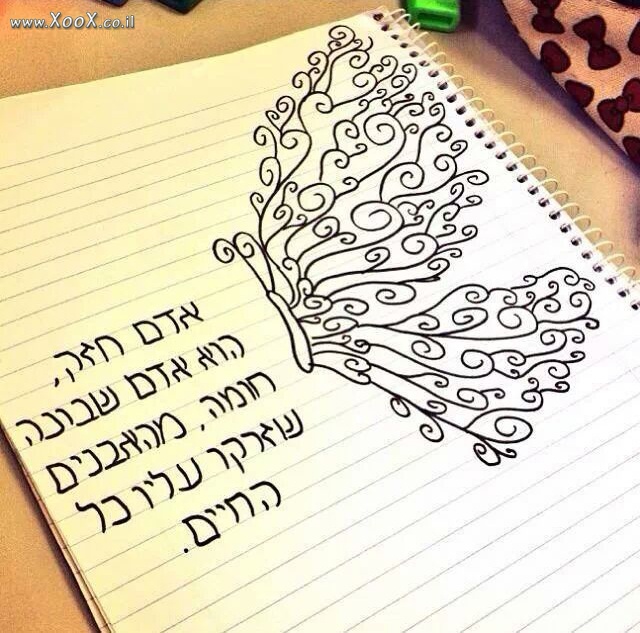 www.XooX.co.il
אדם חזק,
הוא אדם שבונה
חומה, מהאבנים
שזרקו עליו כל
החיים.